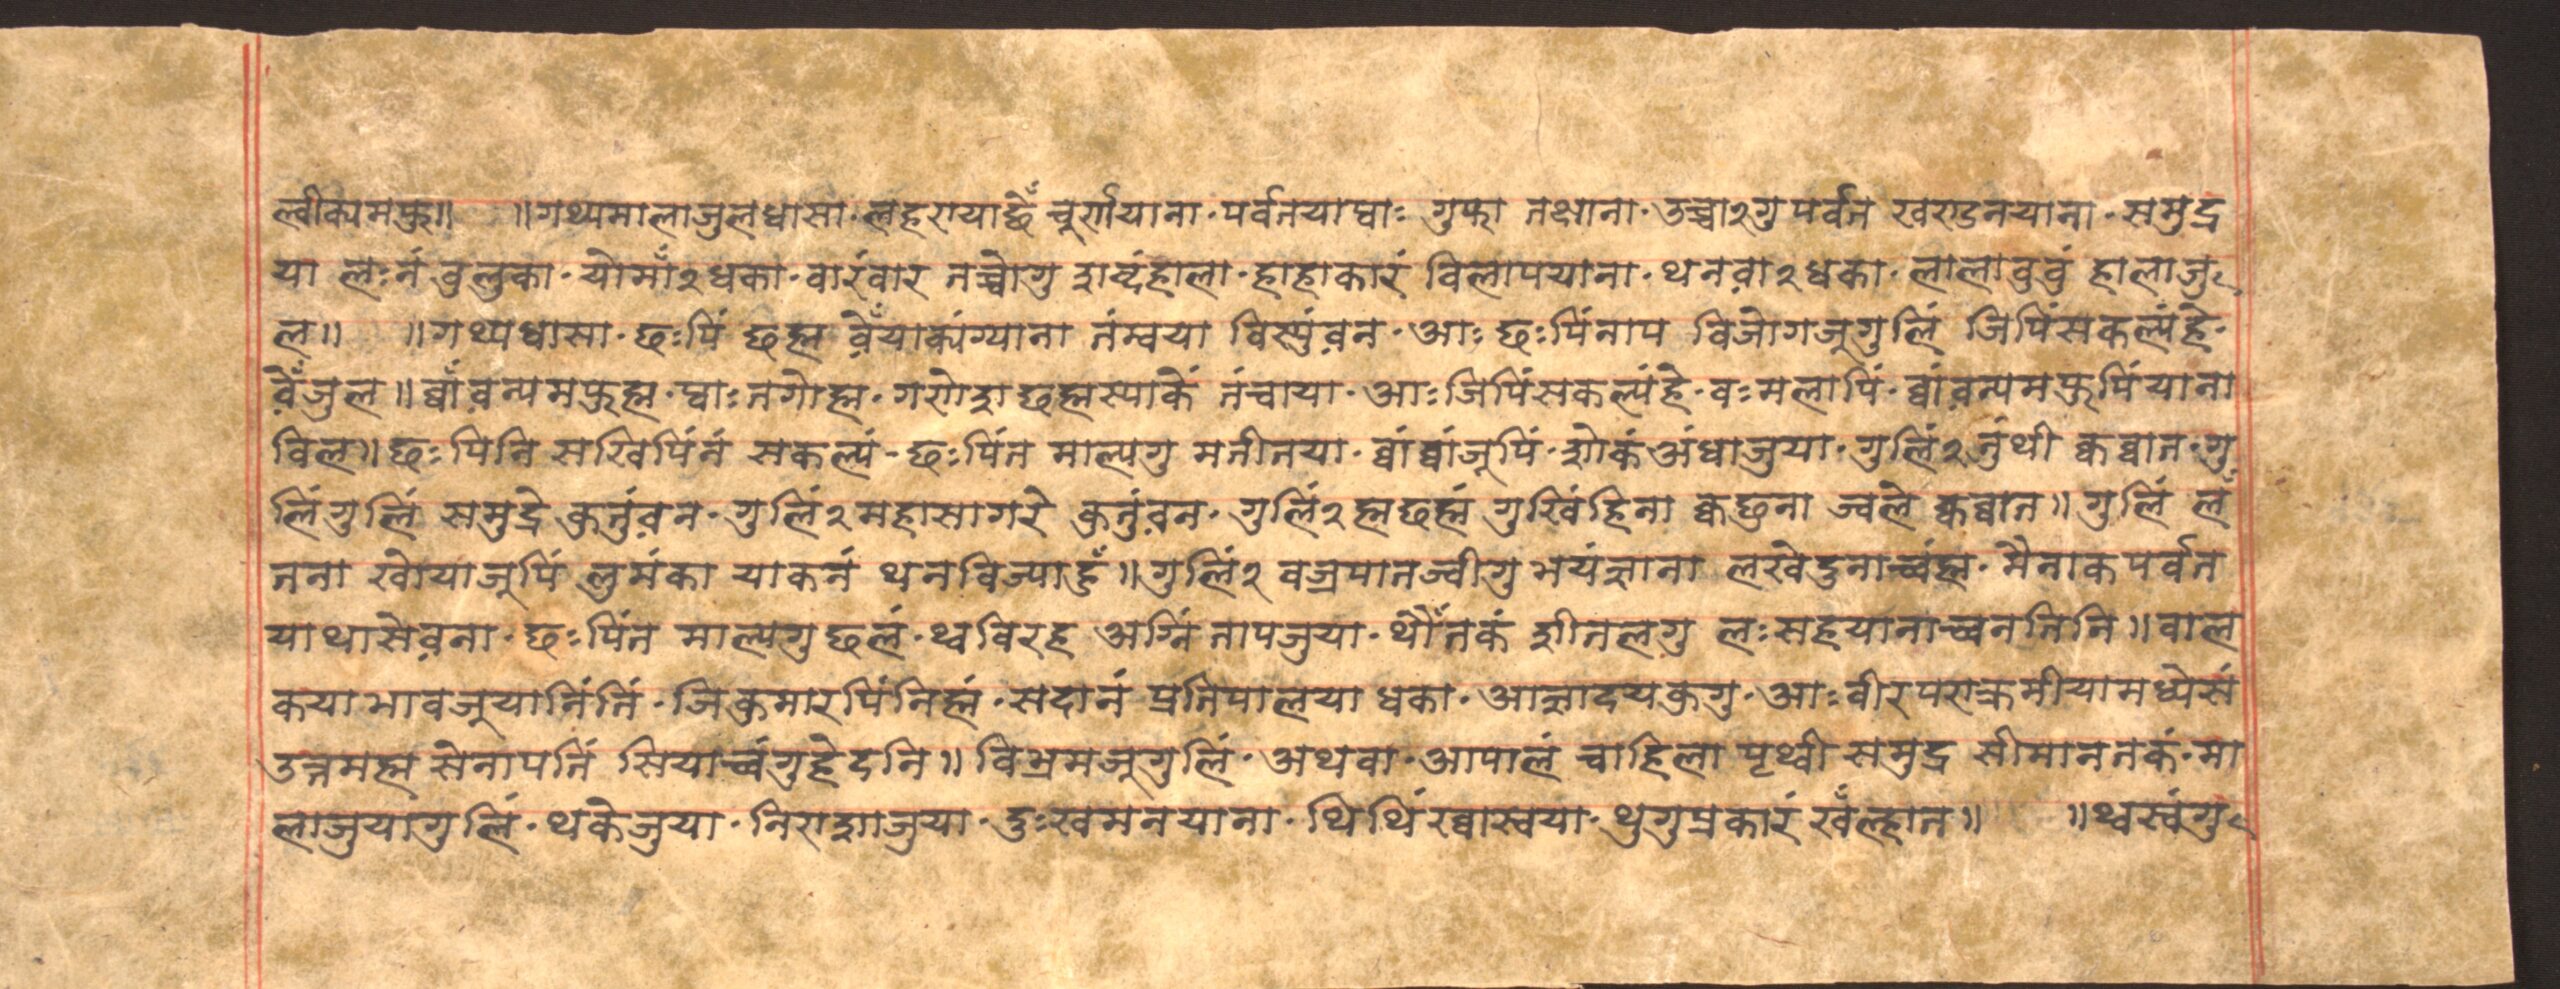 ल्वीक्यमफु॥ ॥गथ्यमालाजुलधासा·लहरायाद्वेँ चूर्णयाना·पर्वतयाघाः गुफा तक्षाना·उच्चा२गु पर्वत खण्डनयाना·समुद्र
या लःनं वुलुका·योमाँ२धका·वारंवार तच्चोगु शब्दंहाला·हाहाकारं विलापयाना·थनवा२धका·लालावुवुं हालाजु
ल॥ ॥गथ्यधासा·छःपिं छह्म वेँयाक्यंग्याना तंम्वया विस्युंवन·आः छःपिंनाप विजोगजूगुलिं जिपिंसकल्यंहे·
वेँजुल॥ब्वाँवन्यमफुह्म·घाःतगोह्म·गरोशछह्मस्याकें तंचाया·आःजिपिंसकल्यंहे·वःमलापिं·ब्वांवन्यमफुपिंयाना
विल॥छःपिनि सखिपिंनं सकल्यं-छःपिंत माल्यगु मतीतया·ब्वांब्वांजूपिं·शोकंअंधाजुया·गुलिं२तुंथी कब्वात·गु
लिंगुलिं समुद्रे कुतुंवन·गुलिं२महासागरे कुतुंवन·गुलिं२ह्मछह्मं गुखिंहिना क्वेछुना ज्वले क्वब्वात॥गुलिं लँ
तना खोयाजूपिं लुमंका याकनं थनविज्याहुँ॥गुलिं२ वज्रपातज्वीगु भयंत्राना लखेदुनाच्वंह्म·मैनाकपर्वत
याथासेवना·छःपिंत माल्यगुछलं·थ्वविरह अग्निं तापजुया·थौंतकं शीतलगु लःसहयानाच्वनतिनि॥वाल
कयाभावजूयानिंतिं·जिकुमारपिंनिह्मं·सदानं प्रतिपालया धका·आज्ञादयकुगु·आःवीरपराक्रमीयामध्येसं
उत्तमह्म सेनापतिं सियाच्वंगुहेदनि॥विभ्रमजूगुलिं·अथवा·आपालं चाहिला पृथ्वी समुद्र सीमानतकं·मा
लाजुयागुलिं·थकेजुया·निराशाजुया·दुःखमनयाना·थिथिंख्वास्वया·थुगुप्रकारं खँल्हात॥ ॥थ्वस्वंगु